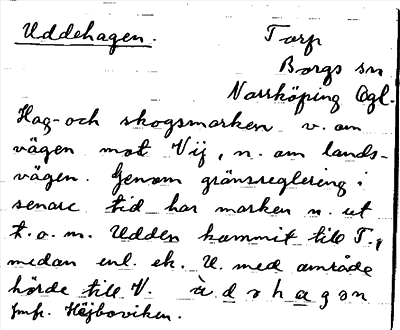 Uddehagen. Torp
Borgs sn
Norrköping Ögl.
Hag- och skogsmarken v. om
vägen mot Vij, n. om lands-
vägen. Genom gränsreglering i
senare tid har marken n. ut
t.o.m. Udden kommit till T.,
medan enl. ek. U. med område
hörde till V. ùdəhagən
Jmfr. Höjboviken.